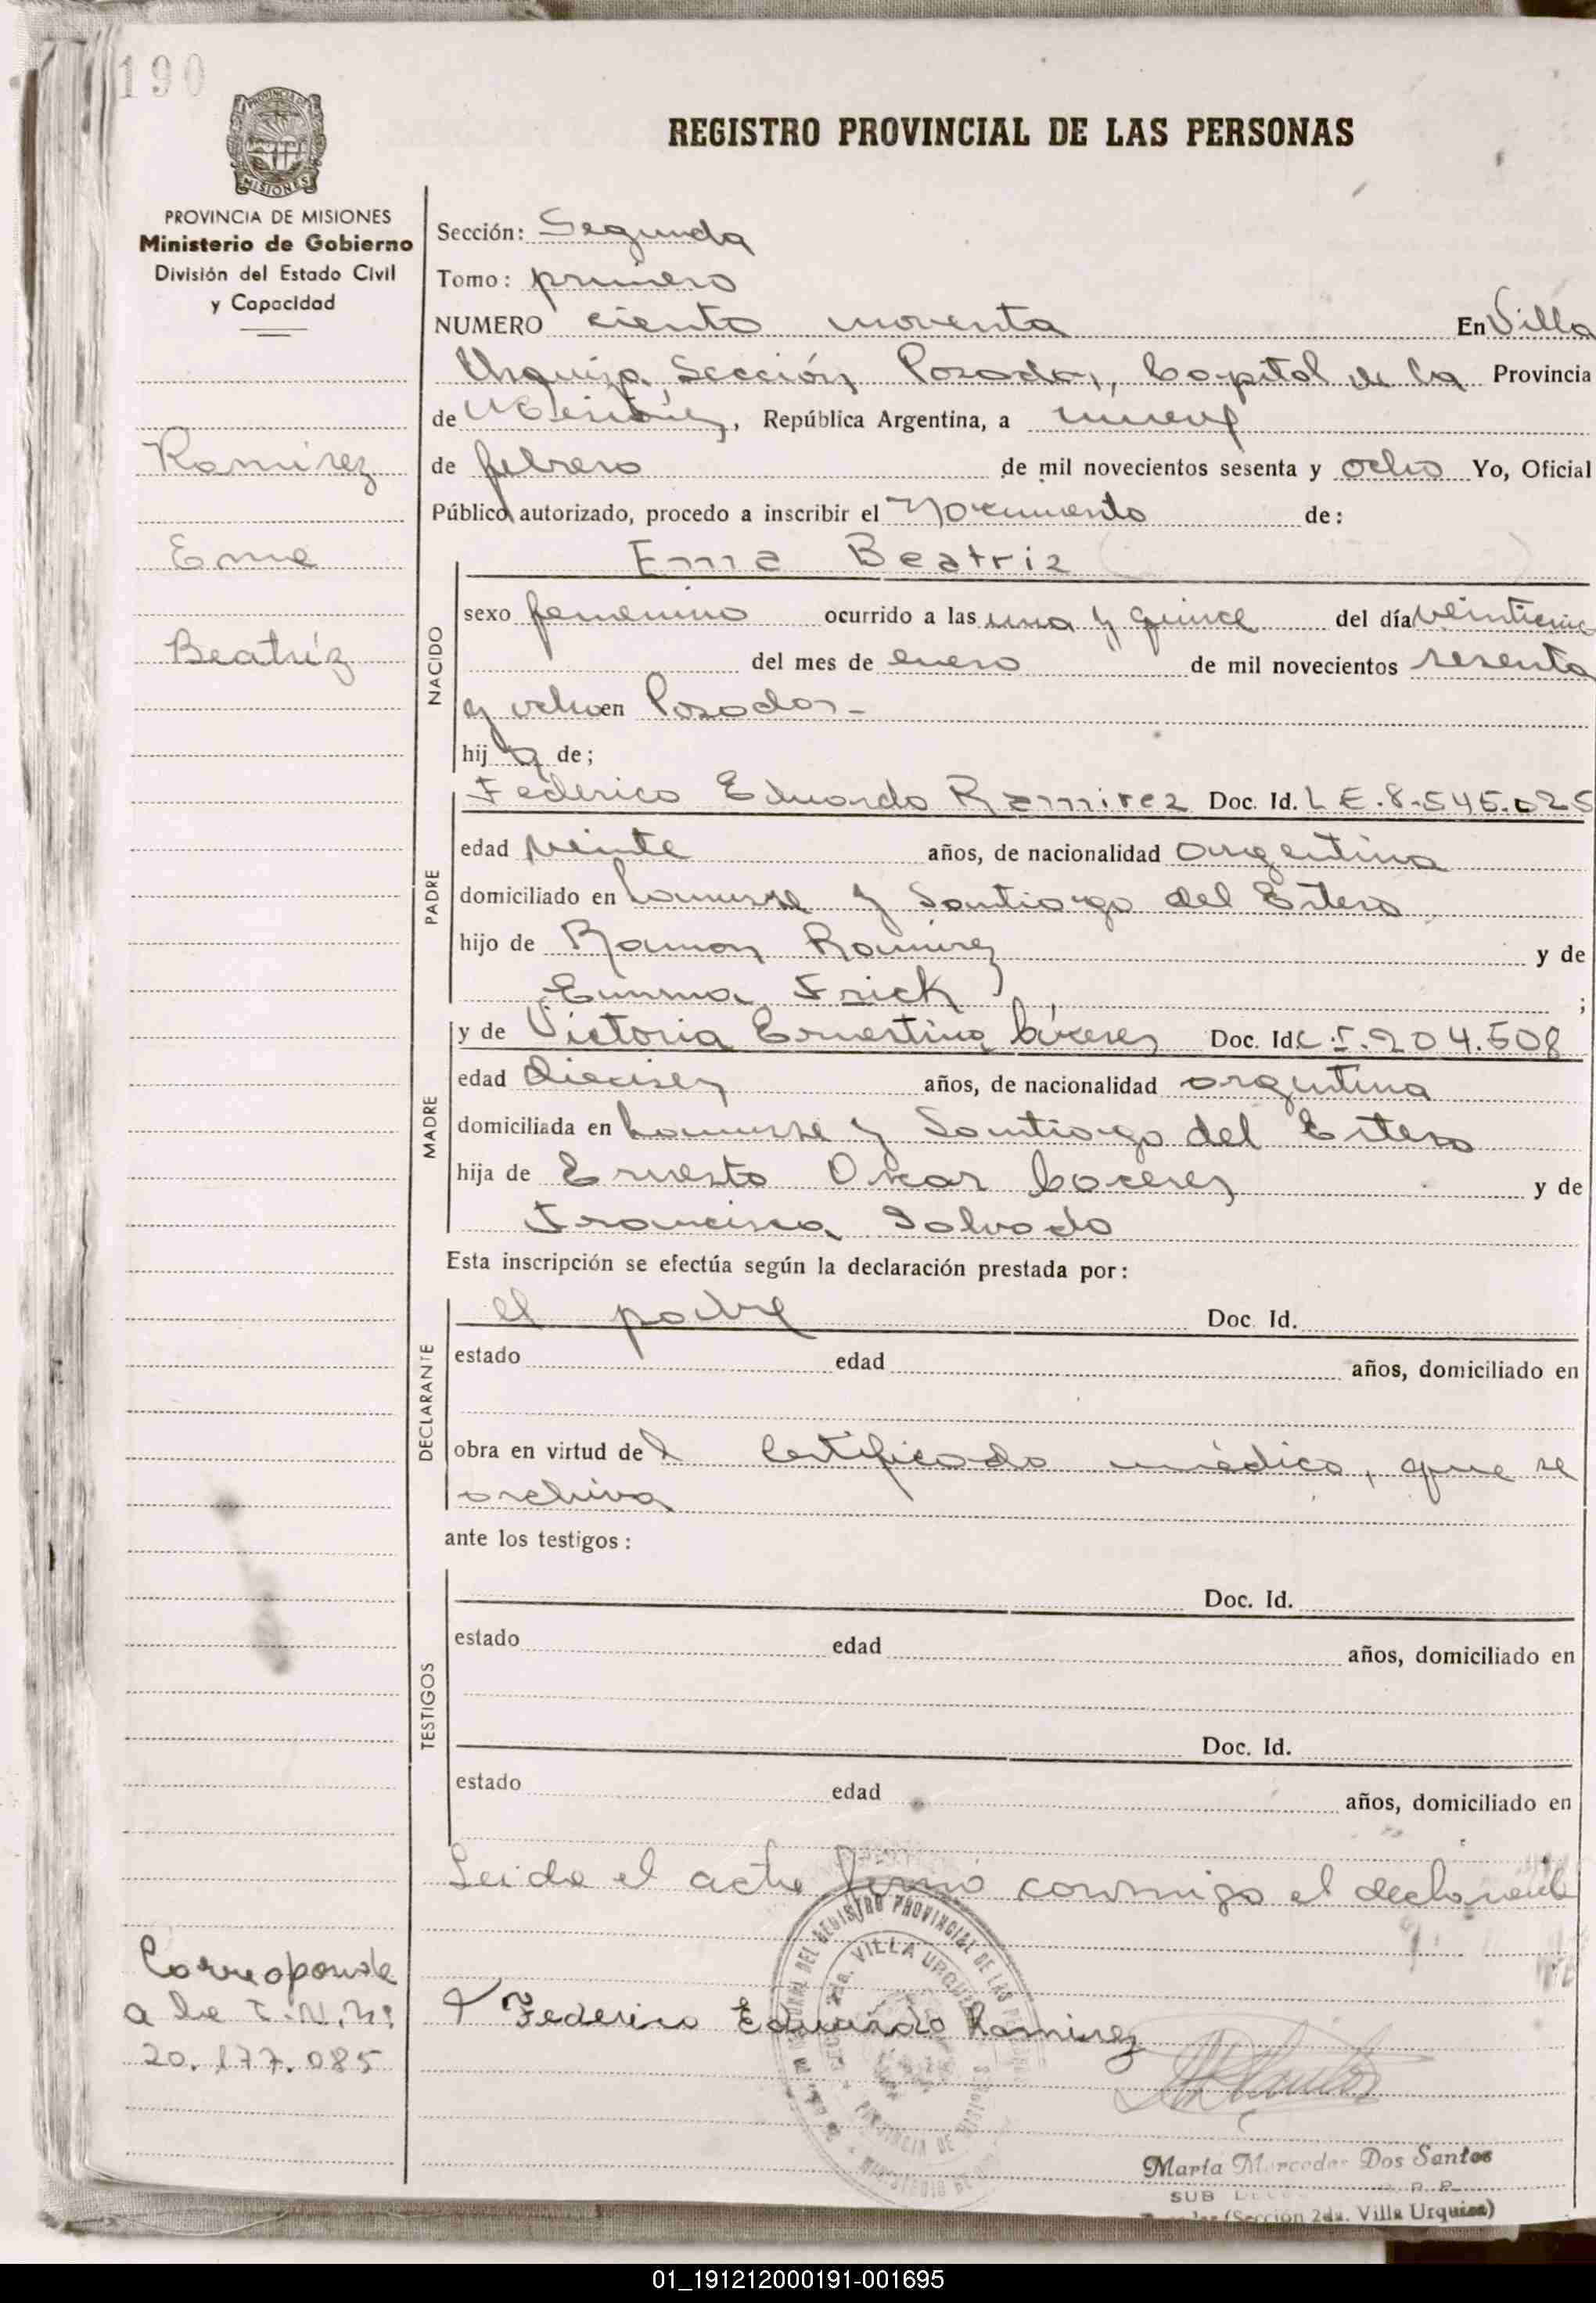 190
PROVINCIA DE MISIONES
MISIONES
PROVINCIA DE MISIONES
Ministerio de Gobierno
División del Estado Civil
y Capacidad
Ramirez
Eme
Beatríz
Corresponde
a la I.N.N:
20.177.085
REGISTRO PROVINCIAL DE LAS PERSONAS
Sección: Segunda
Tomo: primero
NUMERO ciento noventa En Villa
Urquiza Sección Posadas, Capital de la Provincia
de Misiones, República Argentina, a nueve
de febrero de mil novecientos sesenta y ocho Yo, Oficial
Público autorizado, procedo a inscribir el Nacimiento de:
Ema Beatriz
NACIDO
sexo femenino ocurrido a las una y quince del día
del mes de enero de mil novecientos sesenta
y ocho en Posadas-
hij a de;
PADRE
Federico Eduardo Ramirez Doc. Id. L E.8.545.025
edad veinte años, de nacionalidad argentina
domiciliado en Lanusse y Santiago del Estero
hijo de Ramon Ramirez y de
Emma Frick ;
MADRE
y de Victoria Ernestina Cáceres Doc. Id C.I.204.508
edad dieciseis años, de nacionalidad argentina
domiciliada en Lanusse y Santiago del Estero
hija de Ernesto Oscar Caceres y de
Francisca Salvado
Esta inscripción se efectúa según la declaración prestada por:
DECLARANTE
el padre Doc. Id.
estado edad años, domiciliado en
obra en virtud del Certificado médico, que se
archiva
ante los testigos:
TESTIGOS
Doc. Id.
estado edad años, domiciliado en
Doc. Id.
estado edad años, domiciliado en
Leida el acta firmó conmigo el declarante
Federico Eduardo Ramirez
DEL REGISTRO PROVINCIAL DE LAS
2da. VILLA URQUIZA
PROVINCIA DE
MINISTERIO DE
María Mercedes Dos Santos
SUB
(Sección 2da. Villa Urquiza)
01_191212000191-001695